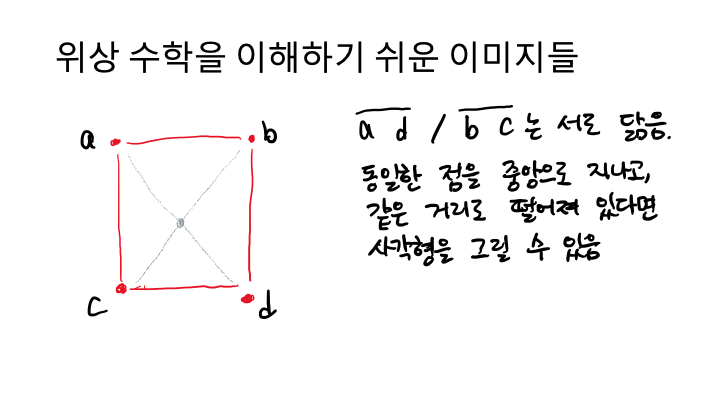 위상 수학을 이해하기 쉬운 이미지들
a b
a d / b c 는 서로 닮음.
동일한 점을 중앙으로 지나고,
같은 거리로 떨어져 있다면
사각형을 그릴 수 있음
c d